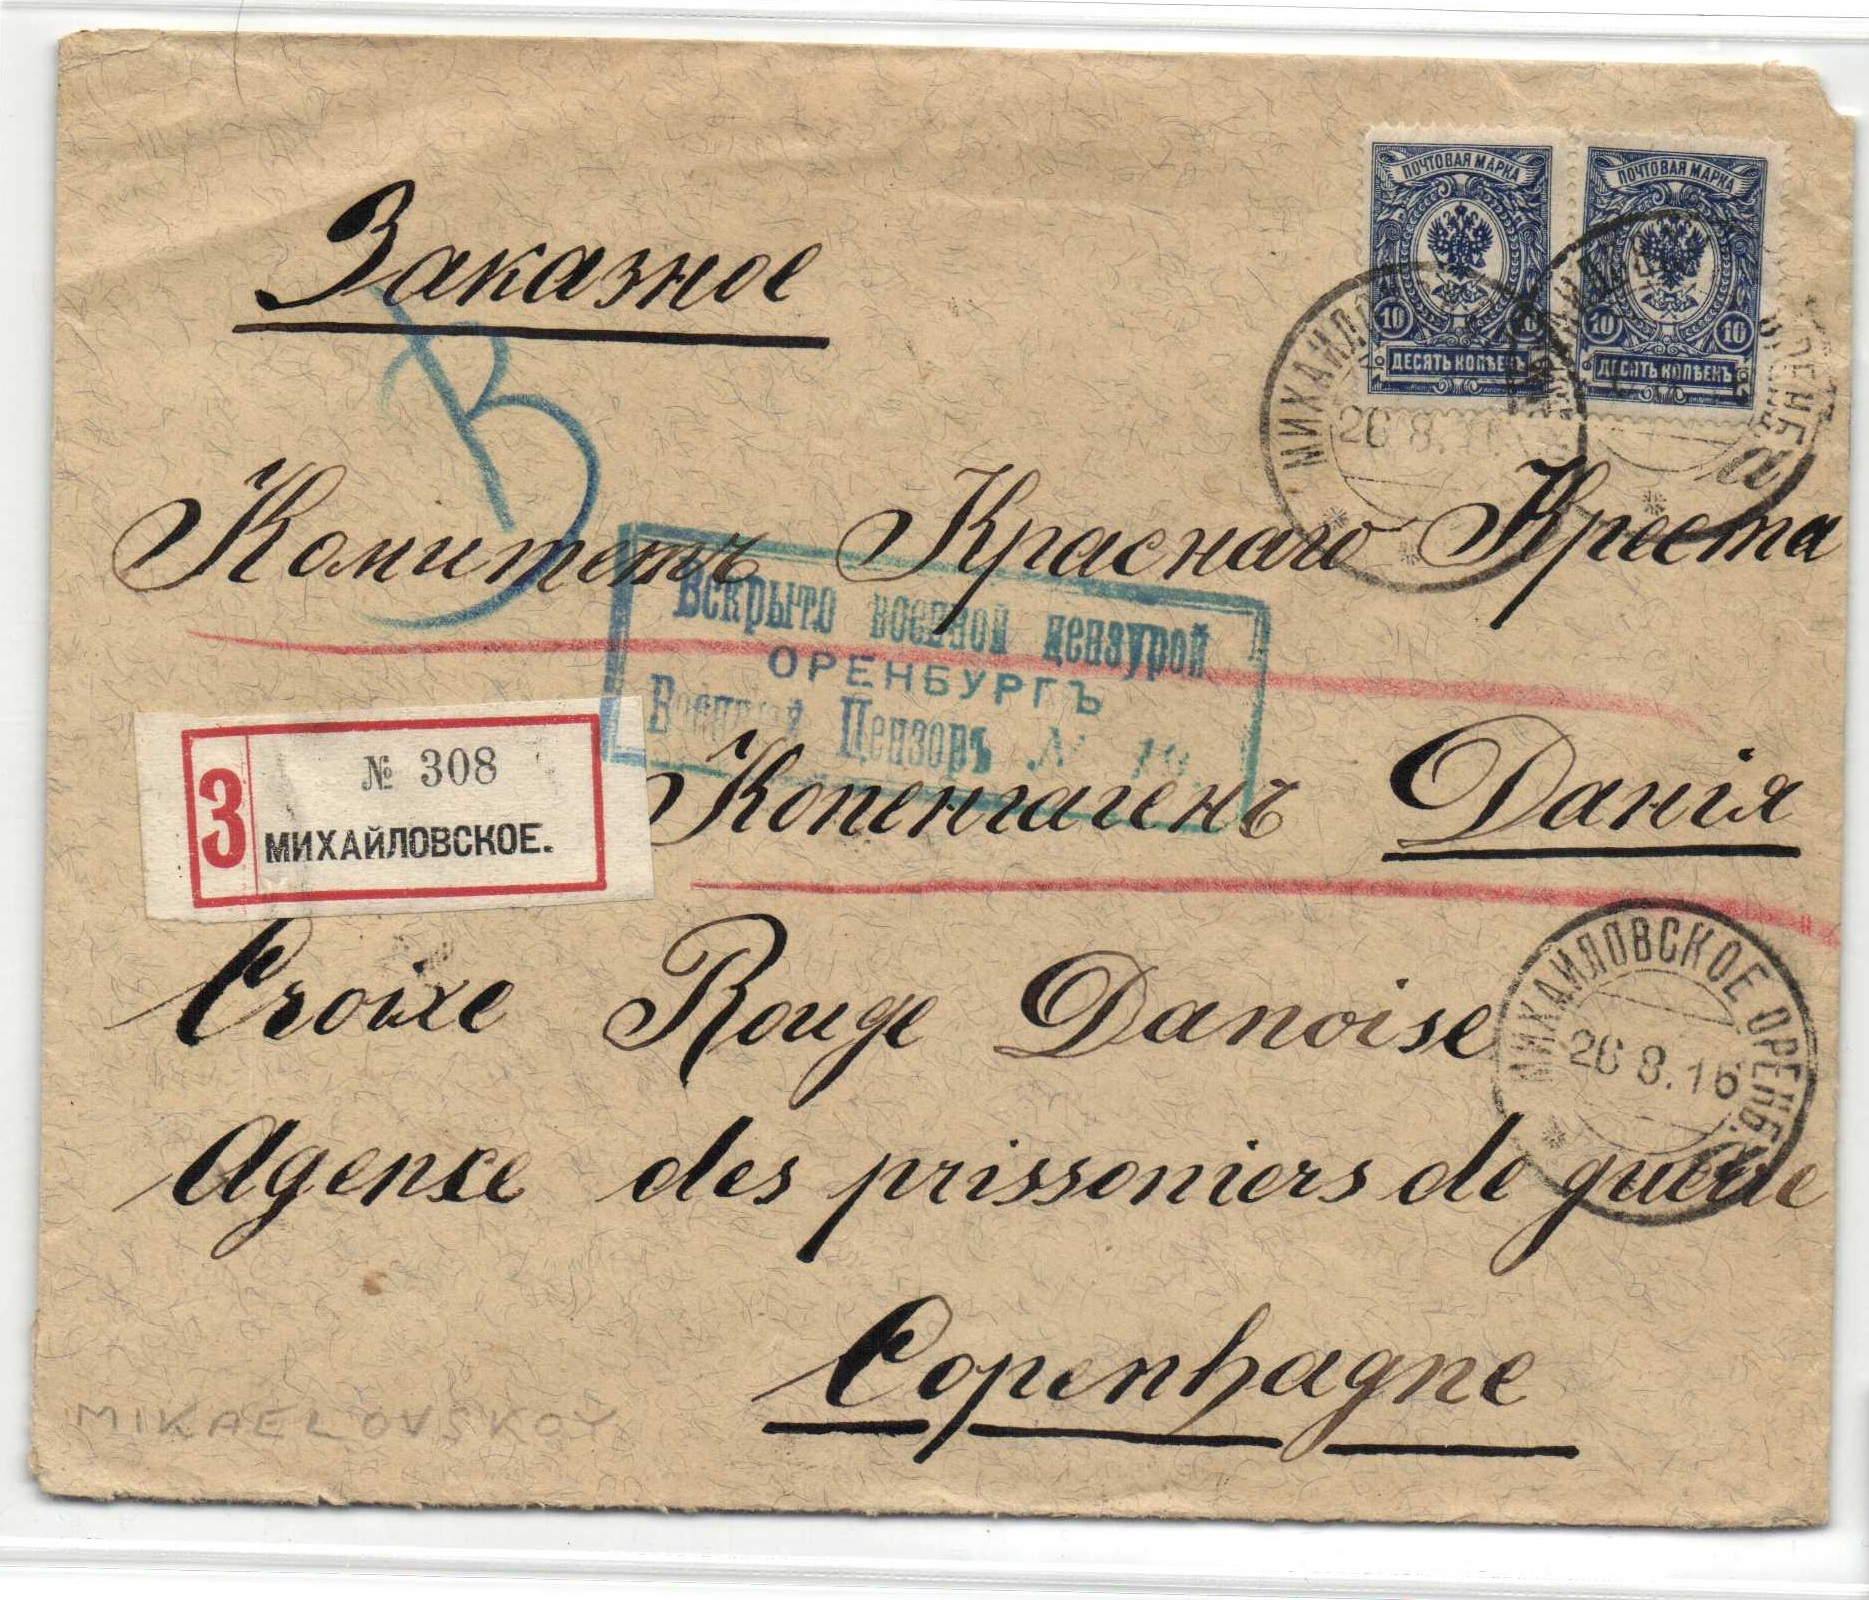 Заказное
ПОЧТОВАЯ МАРКА
10 10
ДЕСЯТЬ КОПѢЕКЪ
ПОЧТОВАЯ МАРКА
10 10
ДЕСЯТЬ КОПѢЕКЪ
26 8.16
В
Комитетъ Краснаго Креста
Вскрыто военной цензурой
ОРЕНБУРГЪ
Военный Цензоръ №
№ 308
З
МИХАЙЛОВСКОЕ.
Копенгагенъ Данія
МИХАЙЛОВСКОЕ ОРЕНБ.
26 8.16
Croixe Rouge Danoise
Agense des prissoniers de guerre
Copenhagne
MIKAELOVSKOY